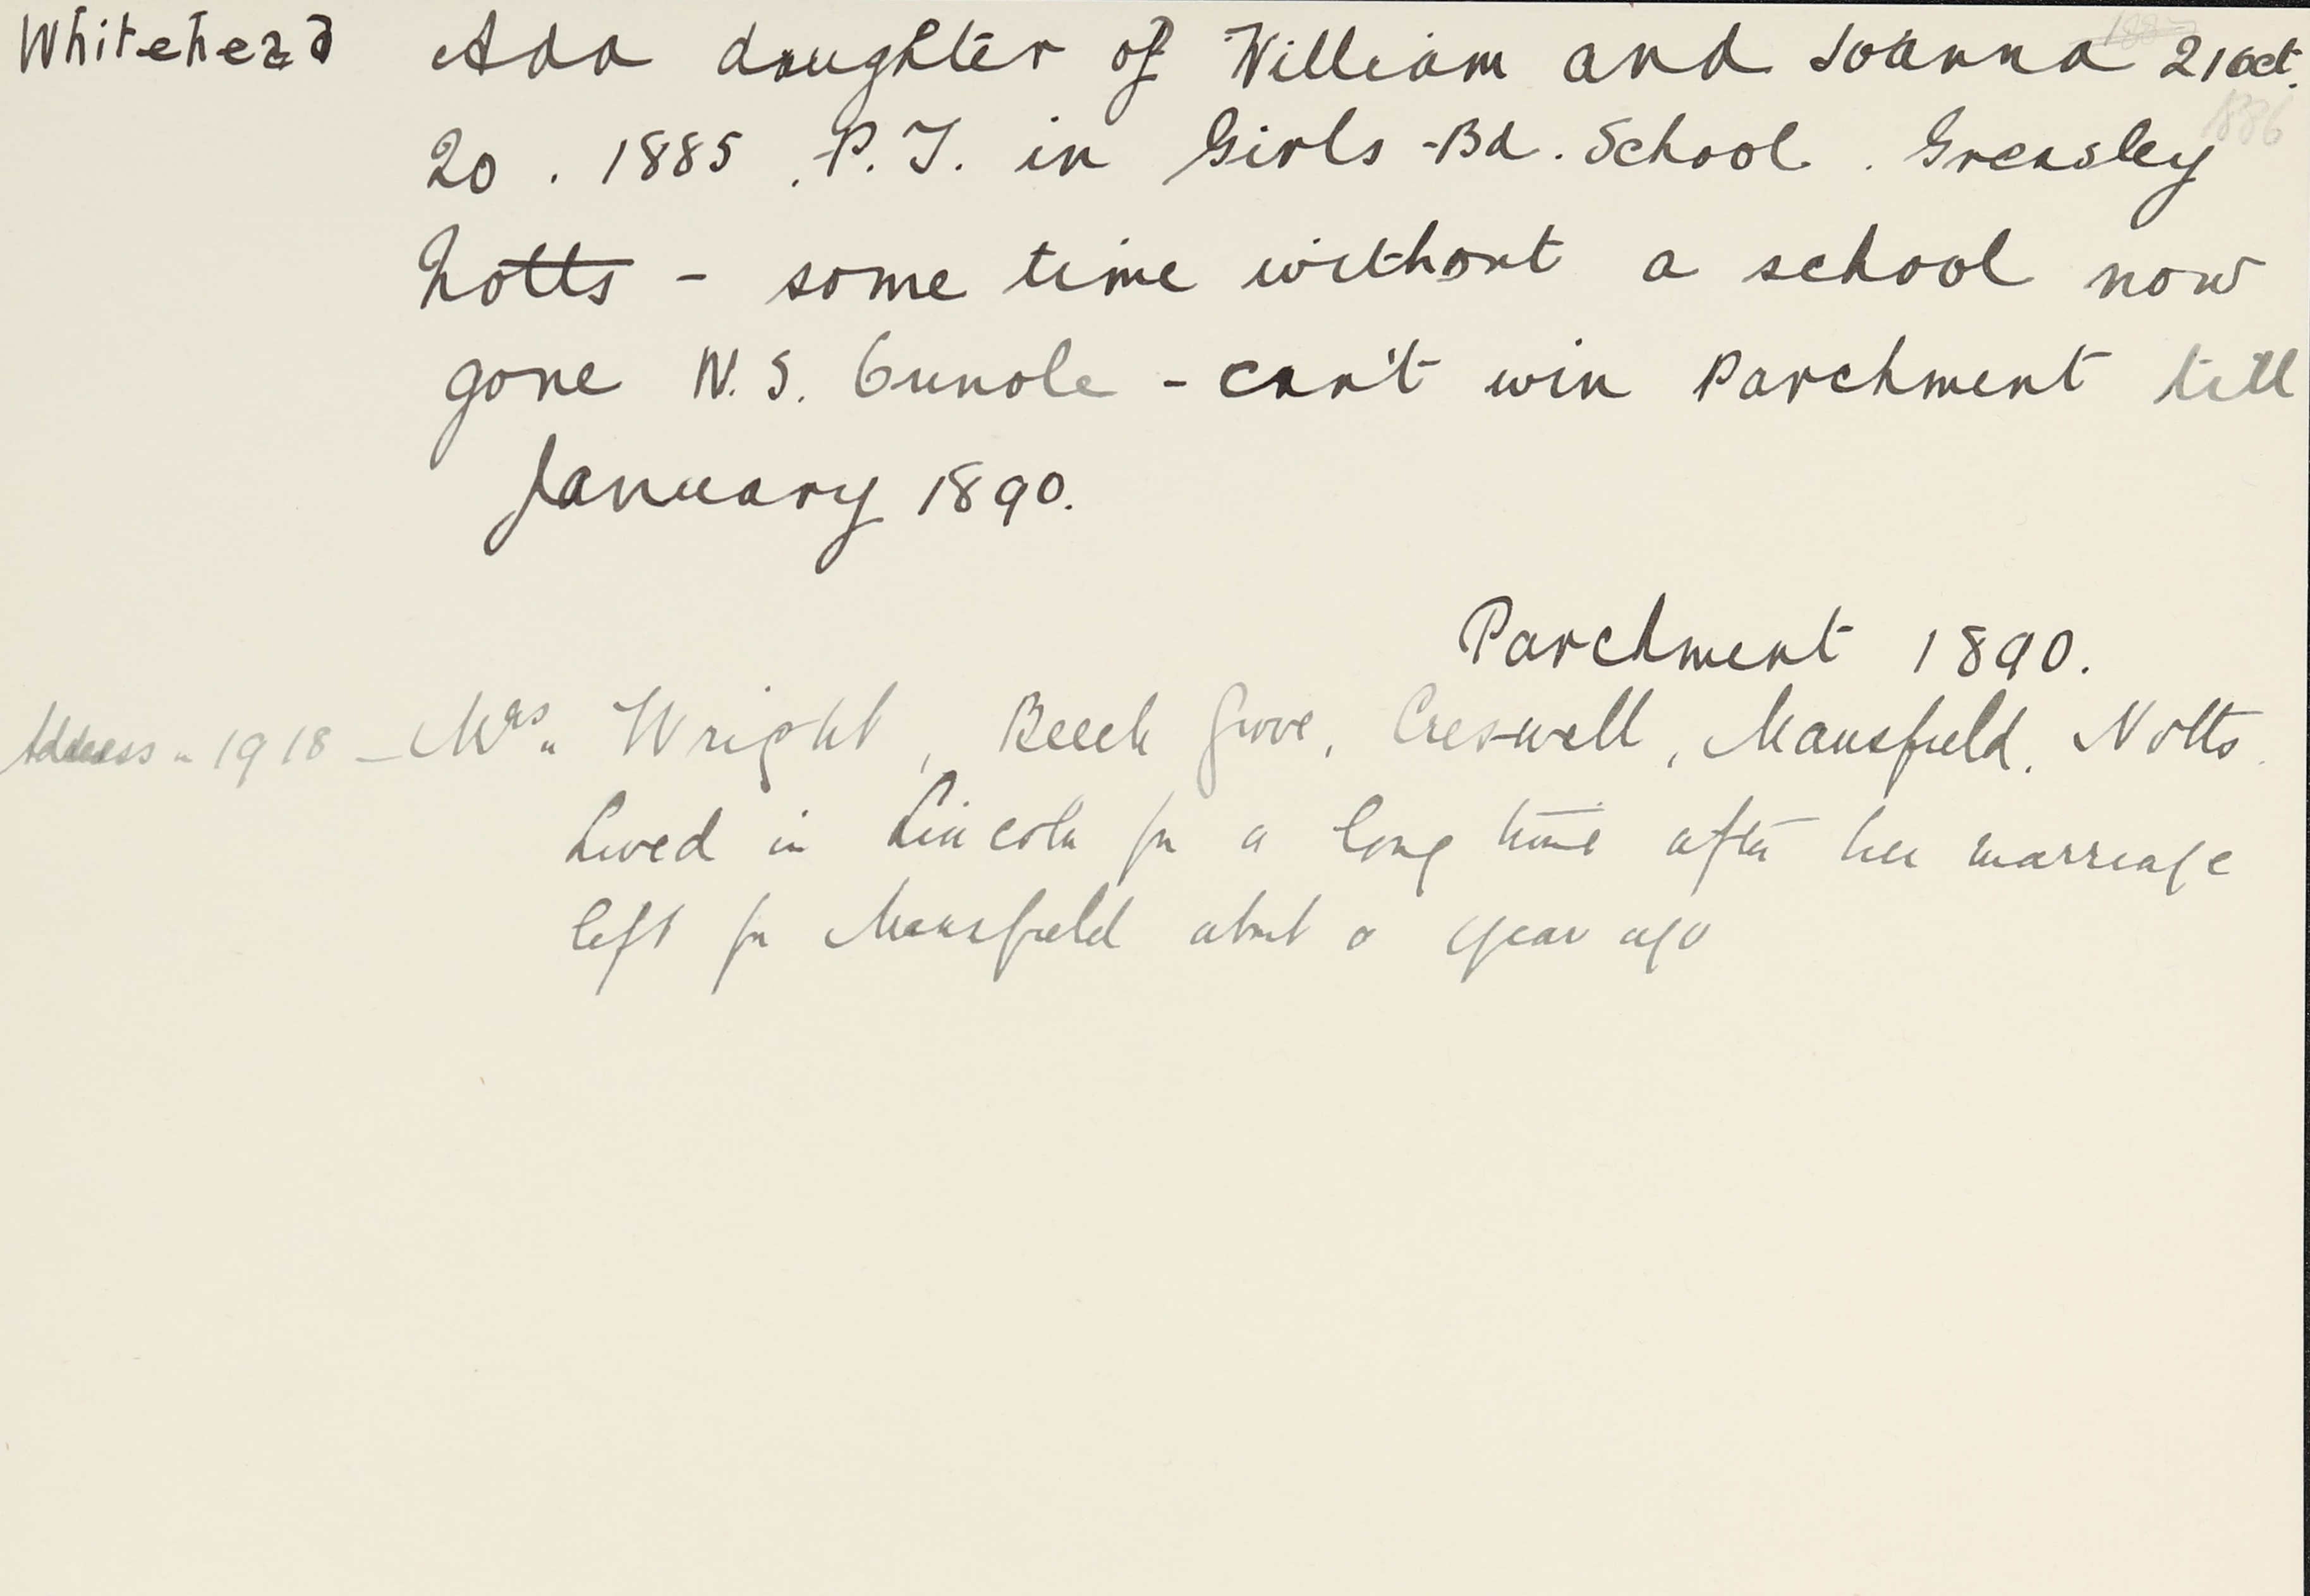 Whitehead Ada daughter of William and Joanna 21 Oct.
1886
20. 1885. P.T. in Girls Bd. School. Greasley
Notts - some time without a school now
gone N.S. - can't win Parchment till
January 1890.
Parchment 1890.
Address - 1918 - Mrs. Wright, Beech Grove, Creswell, Mansfield, Notts.
Lived in Lincoln for a long time after her marriage
left for Mansfield about a year ago